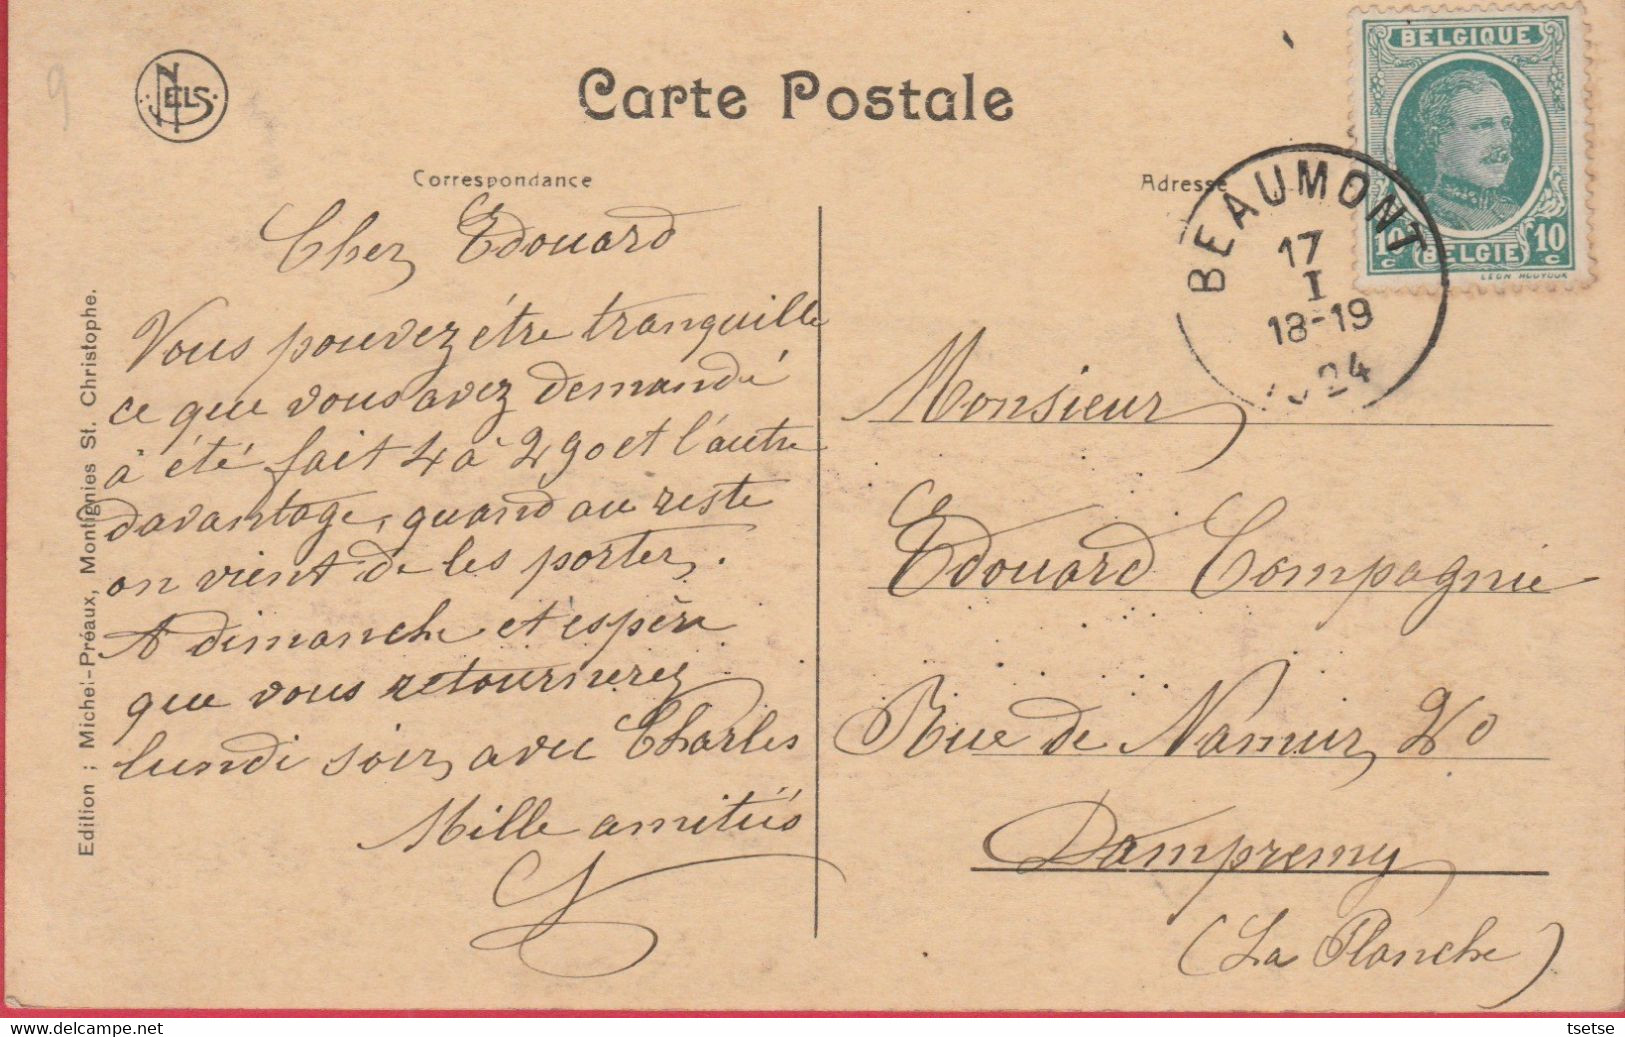 NELS
Carte Postale
BELGIQUE
10 c
BELGIE
10 c
LEON HOUYOUX
BEAUMONT
17
I
18-19
1924
Correspondance
Adresse
Chez Edouard
Vous pouvez être tranquille
ce que vous avez demandé
à été fait 4 à 2 90 et l'autre
davantage, quand au reste
on vient de les porter.
A dimanche et espère
que vous retournerez
lundi soir, avec Charles
Mille amitiés
Monsieur
Edouard Compagnie
Rue de Namur,
Dampremy
(La Planche)
Edition : Michel-Préaux, Montignies St. Christophe.
9
delcampe.net
tsetse